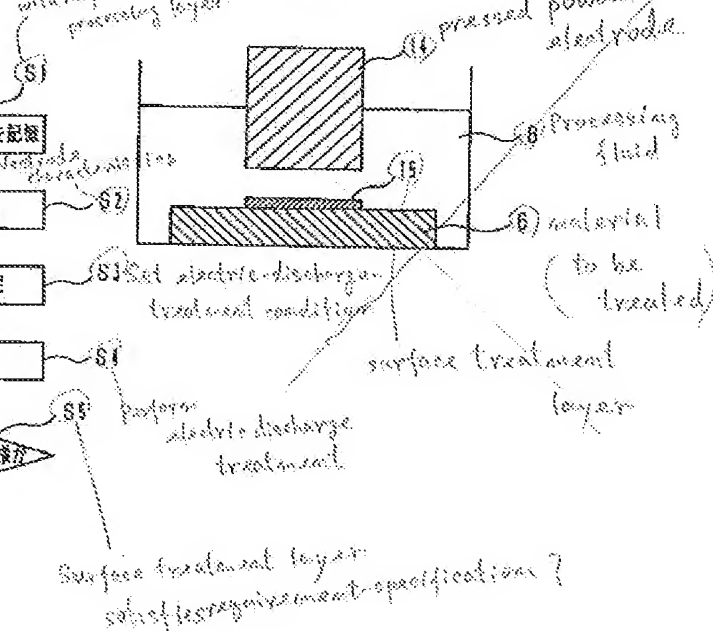 processing layer
S1
を記憶
electrode
S2
S3 Set electric-discharge
treatment condition
S4
perform
electric discharge
treatment
S5
Surface treatment layer
satisfies requirement specification?
14 pressed powder
electrode
8 Processing
fluid
15
6 material
(to be
treated)
surface treatment
layer